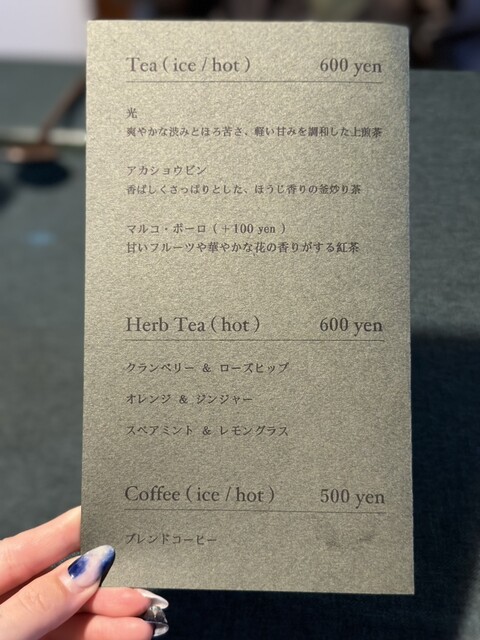 Tea ( ice / hot ) 600 yen
光
爽やかな渋みとほろ苦さ、軽い甘みを調和した上煎茶
アカショウビン
香ばしくさっぱりとした、ほうじ香りの釜炒り茶
マルコ・ポーロ ( + 100 yen )
甘いフルーツや華やかな花の香りがする紅茶
Herb Tea ( hot ) 600 yen
クランベリー & ローズヒップ
オレンジ & ジンジャー
スペアミント & レモングラス
Coffee ( ice / hot ) 500 yen
ブレンドコーヒー